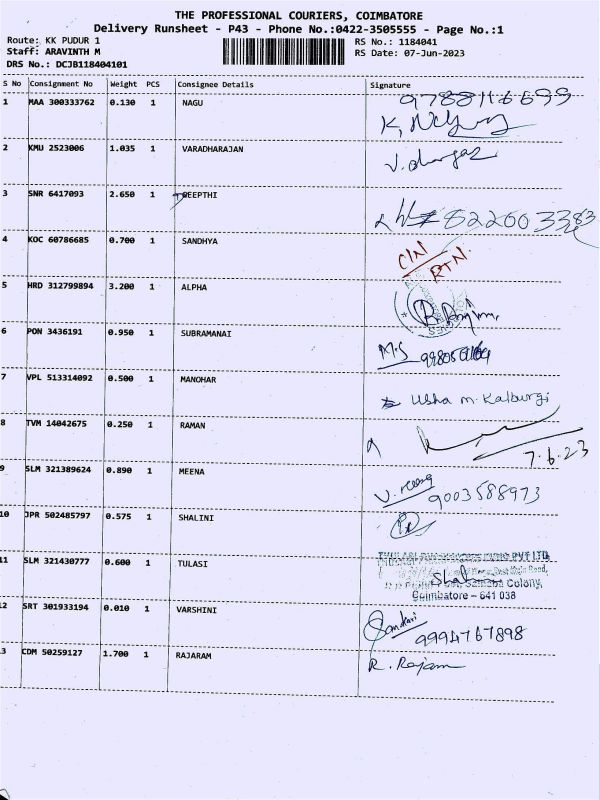 THE PROFESSIONAL COURIERS, COIMBATORE
Delivery Runsheet - P43 - Phone No.:0422-3505555 - Page No.:1
Route: KK PUDUR 1 RS No.: 1184041
Staff: ARAVINTH M RS Date: 07-Jun-2023
DRS No.: DCJB118404101
S No Consignment No Weight PCS Consignee Details Signature
1 MAA 300333762 0.130 1 NAGU 9788116699
2 KMU 2523006 1.035 1 VARADHARAJAN
3 SNR 6417093 2.650 1 DEEPTHI 822003383
4 KOC 60786685 0.700 1 SANDHYA CIN
RTN.
5 HRD 312799894 3.200 1 ALPHA
6 PON 3436191 0.950 1 SUBRAMANAI M.S
7 VPL 513314092 0.500 1 MANOHAR Usha m. Kalburgi
8 TVM 14042675 0.250 1 RAMAN 7.6.23
9 SLM 321389624 0.890 1 MEENA 9003588973
10 JPR 502485797 0.575 1 SHALINI
11 SLM 321430777 0.600 1 TULASI PVT LTD
Main Road,
Colony,
Coimbatore - 641 038
12 SRT 301933194 0.010 1 VARSHINI 9994767898
3 CDM 50259127 1.700 1 RAJARAM R. Rajam